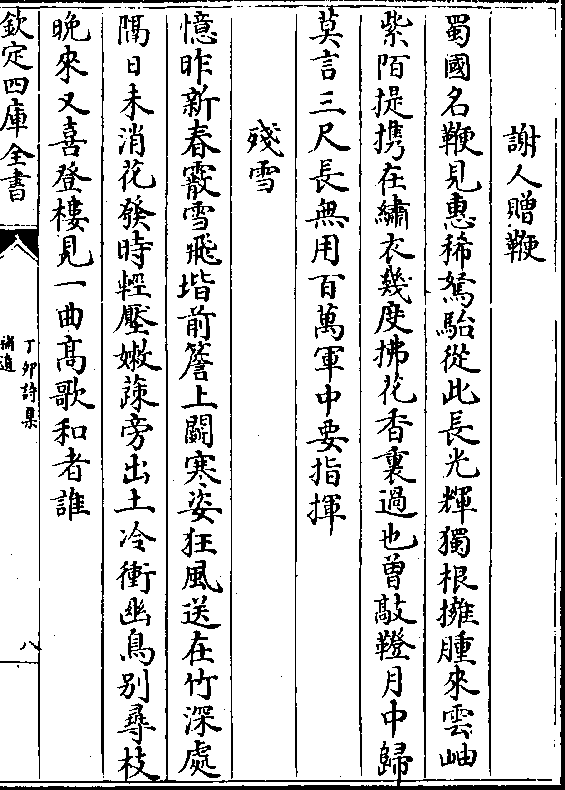 謝人贈鞭
蜀國名鞭見惠稀駑駘從此長光輝獨根擁腫來雲岫
紫陌提携在繡衣幾度拂花香裏過也曾敲鞚月中歸
莫言三尺長無用百萬軍中要指揮
殘雪
憶昨新春霰雪飛堦前簷上鬭寒姿狂風送在竹深處
隔日未消花發時輕壓嫩蔬旁出土冷衝幽鳥别尋枝
晚來又喜登樓見一曲髙歌和者誰
欽定四庫全書
丁卯詩集
補遺
八